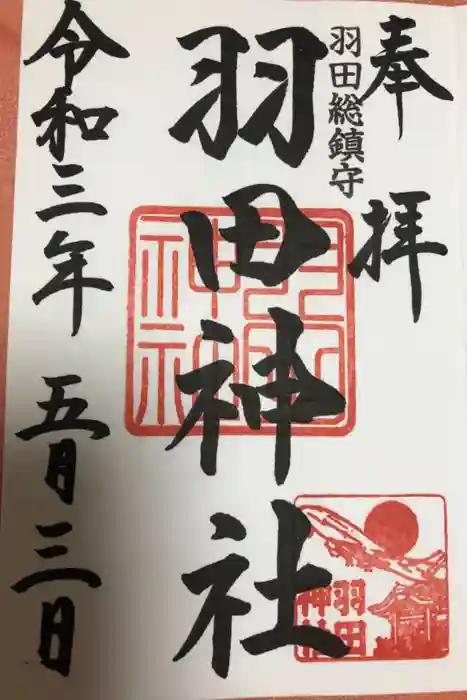 奉拝
羽田総鎮守
羽田神社
令和三年五月三日
羽田
神社